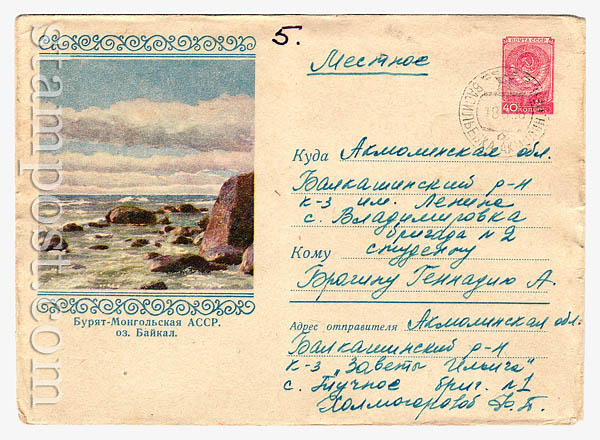 5.
Местное
ПОЧТА СССР
40 КОПЕЕК
Куда Акмолинская обл.
Балкашинский р-н
к-з им. Ленина
с. Владимировка
бригада n 2
Кому студенту
Брагину Геннадию А.
Бурят-Монгольская АССР.
оз. Байкал.
Адрес отправителя Акмолинская обл.
Балкашинский р-н
к-з „Заветы Ильича"
с. Тучное бриг. n 1
Холмогоровой Ф. Т.
stamppost.com